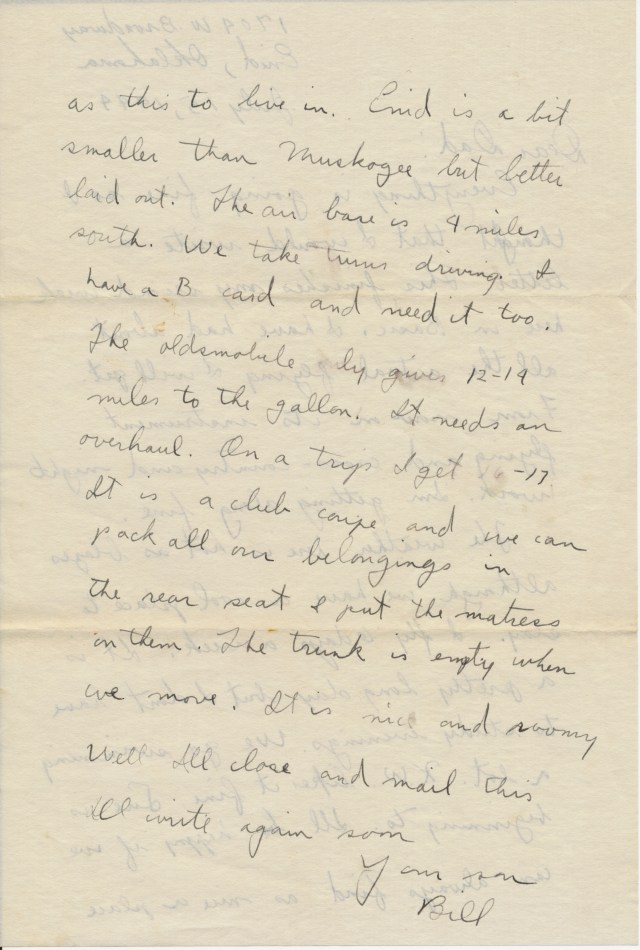 as this to live in. Enid is a bit
smaller than Muskogee but better
laid out. The air base is 4 miles
south. We take turns driving. I
have a B card and need it too.
The oldsmobile by gives 12-14
miles to the gallon. It needs an
overhaul. On a trip I get -17
It is a club coupe and we can
pack all our belongings in
the rear seat & put the matress
on them. The trunk is empty when
we move. It is nice and roomy
Well I'll close and mail this
I'll write again soon
Your son
Bill